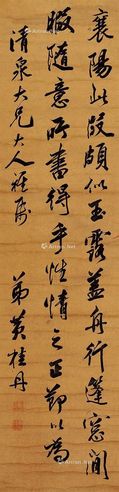 襄陽此頗似玉露蓋舟行篷窗間
暇隨意所書得乎性情之正以為
清泉大兄大人雅屬
弟黃桂丹